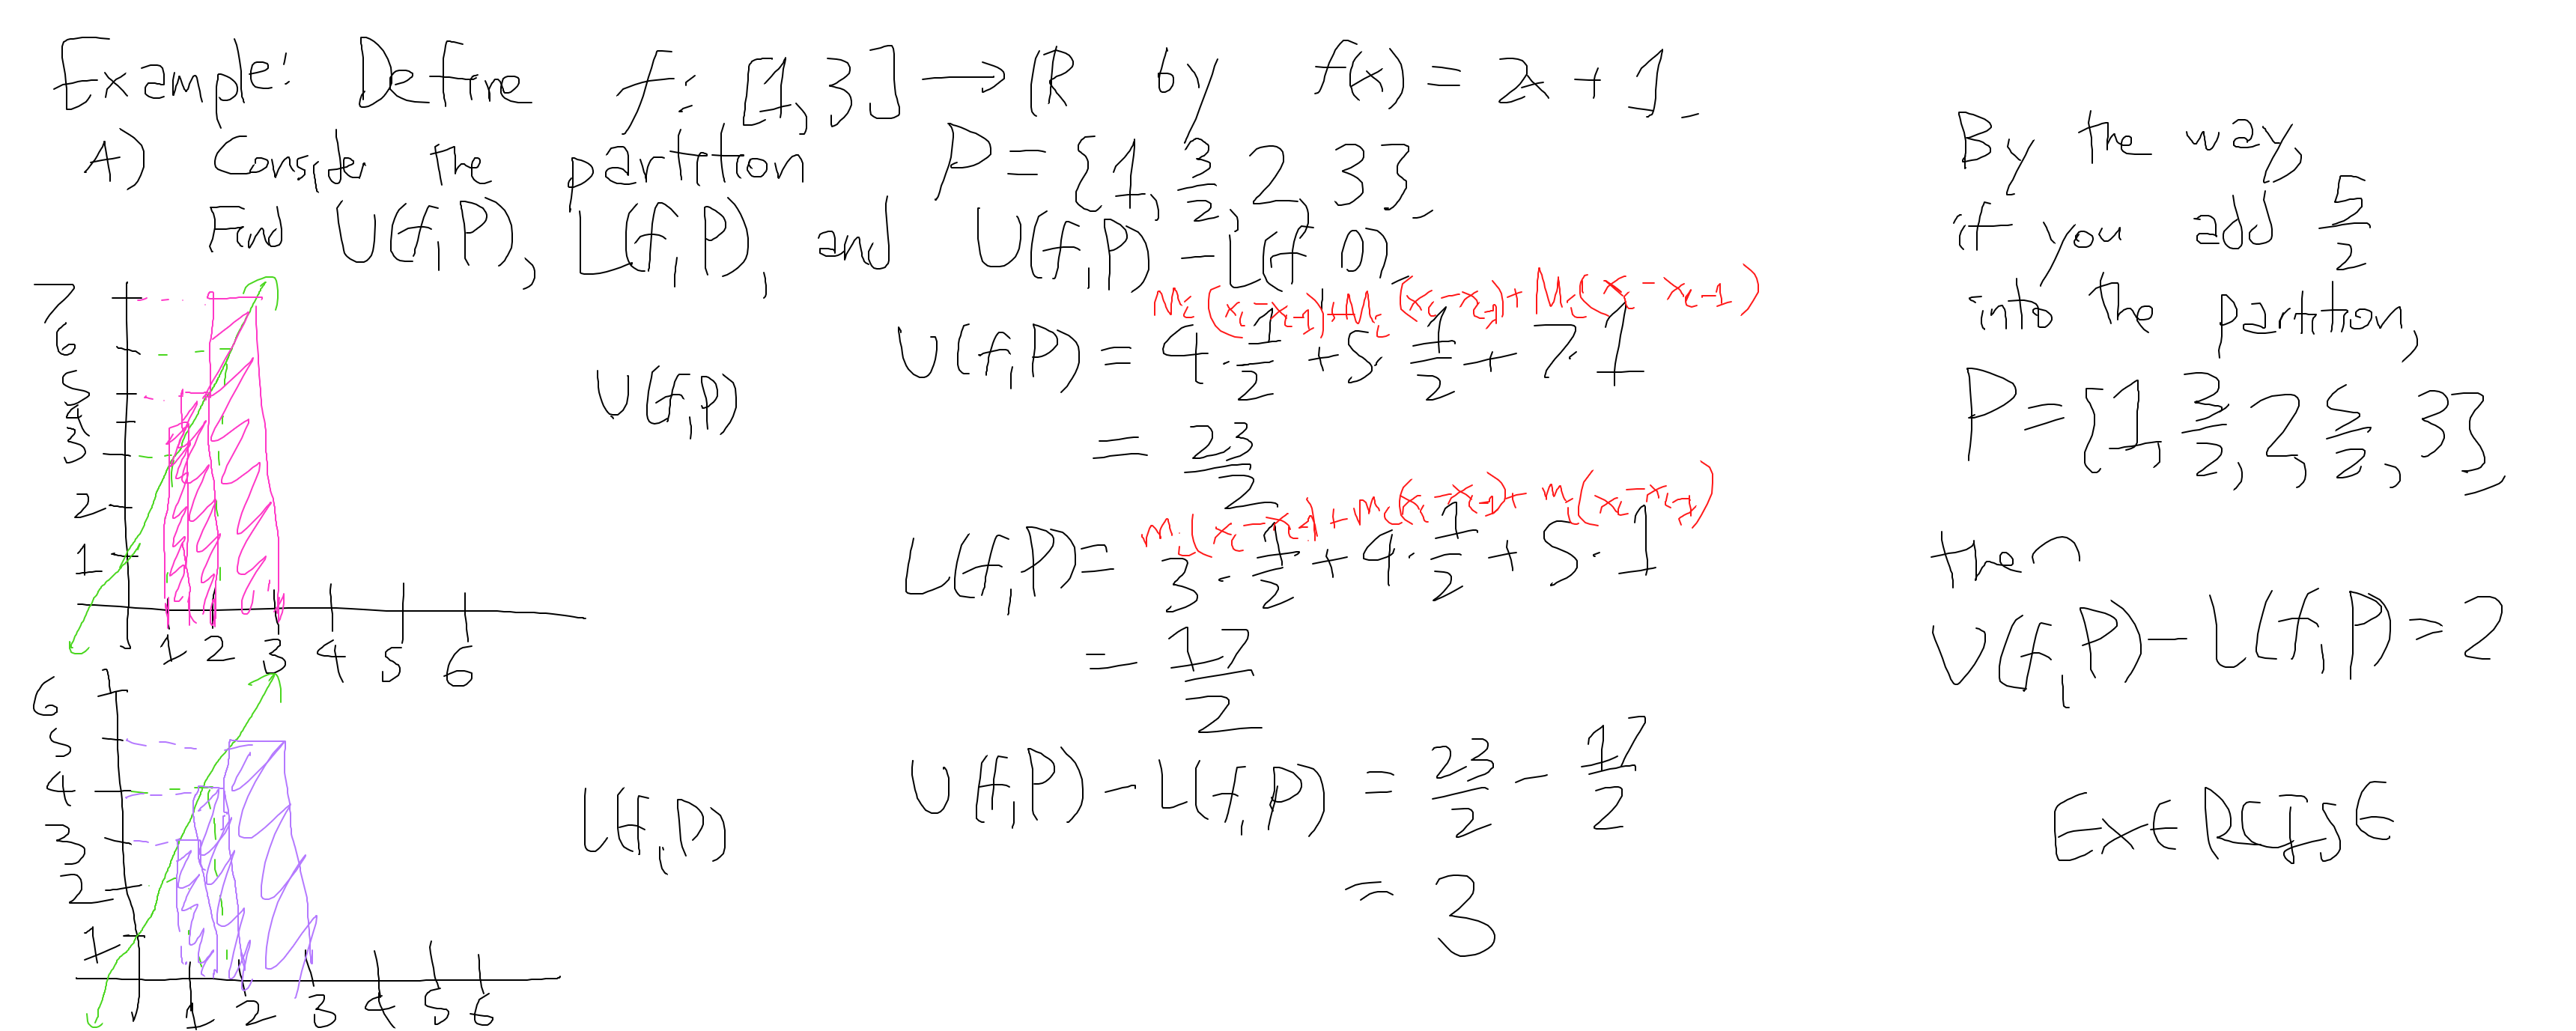 Example: Define f: [1,3] → ℝ by f(x) = 2x + 1.
A) Consider the partition P = {1, 3/2, 2, 3}.
Find U(f,P), L(f,P), and U(f,P) - L(f,P).
7
6
5
4
3
2
1
1 2 3 4 5 6
U(f,P)
6
5
4
3
2
1
1 2 3 4 5 6
L(f,P)
M_i(x_i - x_{i-1}) + M_i(x_i - x_{i-1}) + M_i(x_i - x_{i-1})
U(f,P) = 4·1/2 + 5·1/2 + 7·1
= 23/2
m_i(x_i - x_{i-1}) + m_i(x_i - x_{i-1}) + m_i(x_i - x_{i-1})
L(f,P) = 3·1/2 + 4·1/2 + 5·1
= 17/2
U(f,P) - L(f,P) = 23/2 - 17/2
= 3
By the way,
if you add 5/2
into the partition,
P = {1, 3/2, 2, 5/2, 3},
then
U(f,P) - L(f,P) = 2
EXERCISE